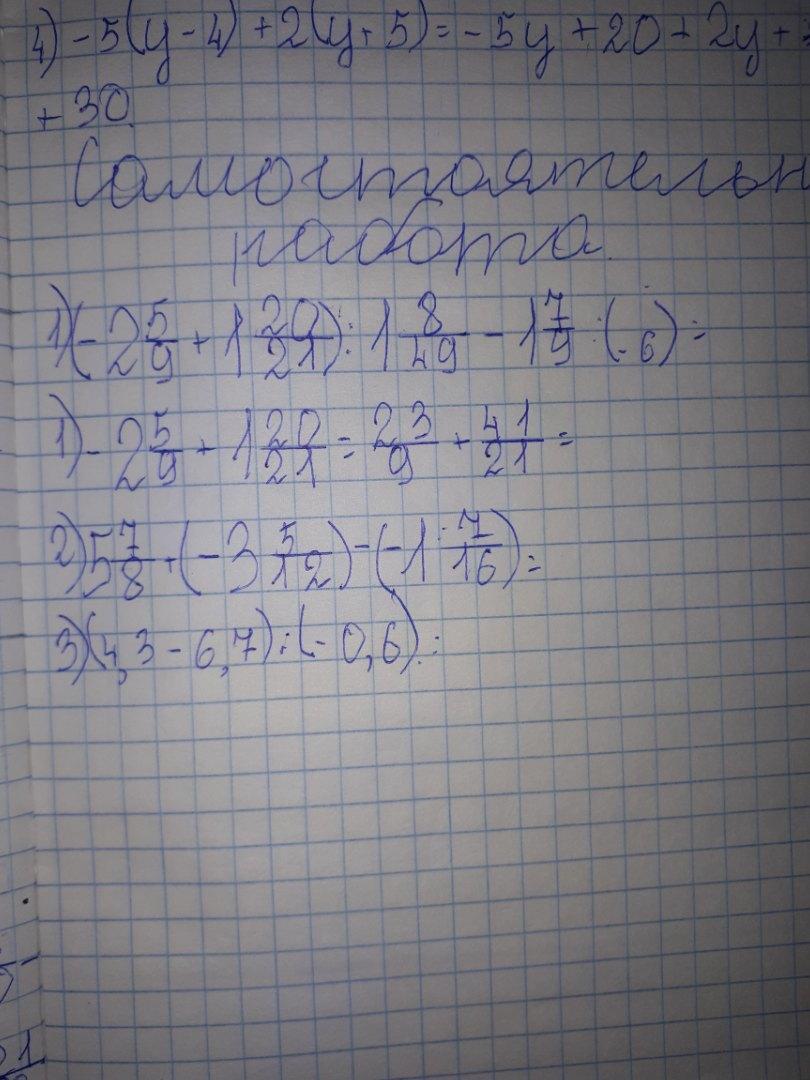 4) -5(y-4)+2(y+5)=-5y+20+2y+
+30
Самостоятельн
работа.
1)(-2 5/9 + 1 20/21) : 1 8/49 - 1 7/9 : (-6) =
1) -2 5/9 + 1 20/21 = 23/9 + 41/21 =
2) 5 7/8 + (-3 5/12) - (-1 7/16) =
3) (4,3 - 6,7) : (-0,6) :